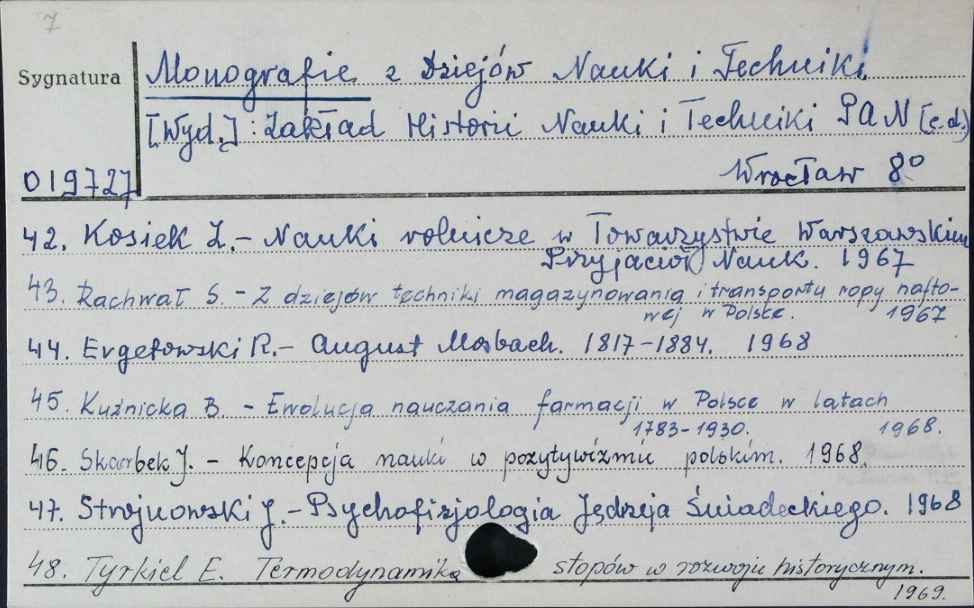 7
Sygnatura
Monografie z Dziejów Nauki i Techniki
[Wyd.]: Zakład Historii Nauki i Techniki PAN [c.d.]
019727
Wrocław 8°
42. Kosiek Z. - Nauki rolnicze w Towarzystwie Warszawskim
Przyjaciół Nauk. 1967
43. Rachwał S. - Z dziejów techniki magazynowania i transportu ropy nafto-
wej w Polsce. 1967
44. Ergetowski R. - August Mosbach. 1817-1884. 1968
45. Kuźnicka B. - Ewolucja nauczania farmacji w Polsce w latach
1783-1930. 1968.
46. Skarbek J. - Koncepcja nauki w pozytywizmie polskim. 1968.
47. Strojnowski J. - Psychofizjologia Jędrzeja Śniadeckiego. 1968
48. Tyrkiel E. Termodynamika stopów w rozwoju historycznym.
1969.